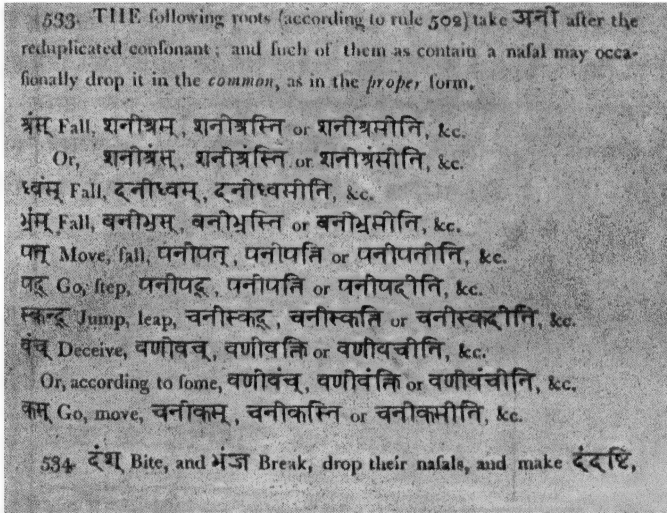 533. THE following roots (according to rule 502) take अनी after the
reduplicated conſonant; and ſuch of them as contain a naſal may occa-
ſionally drop it in the common, as in the proper form.
श्रंस् Fall, शनीश्रस्, शनीश्रस्ति or शनीश्रसीति, &c.
Or, शनीश्रंस्, शनीश्रंस्ति or शनीश्रंसीति, &c.
ध्वंस् Fall, दनीध्वस्, दनीध्वसीति, &c.
भ्रंस् Fall, बनीभ्रस्, बनीभ्रस्ति or बनीभ्रसीति, &c.
पत् Move, fall, पनीपत्, पनीपत्ति or पनीपतीति, &c.
पद् Go, ſtep, पनीपद्, पनीपत्ति or पनीपदीति, &c.
स्कन्द् Jump, leap, चनीस्कद्, चनीस्कत्ति or चनीस्कदीति, &c.
वंच् Deceive, वणीवच्, वणीवक्ति or वणीवचीति, &c.
Or, according to ſome, वणीवंच्, वणीवंक्ति or वणीवंचीति, &c.
कस् Go, move, चनीकस्, चनीकस्ति or चनीकसीति, &c.
534. दंश् Bite, and भंज Break, drop their naſals, and make दंदष्टि,